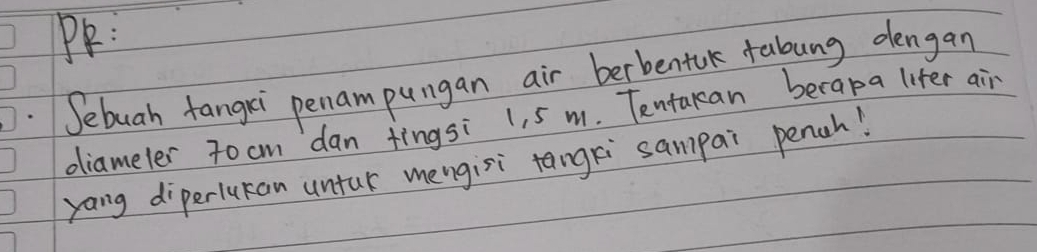 PR:
. Sebuah tangki penampungan air berbentuk tabung dengan
diameter 70 cm dan tinggi 1,5 m. Tentukan berapa liter air
yang diperlukan untuk mengisi tangki sampai penuh!